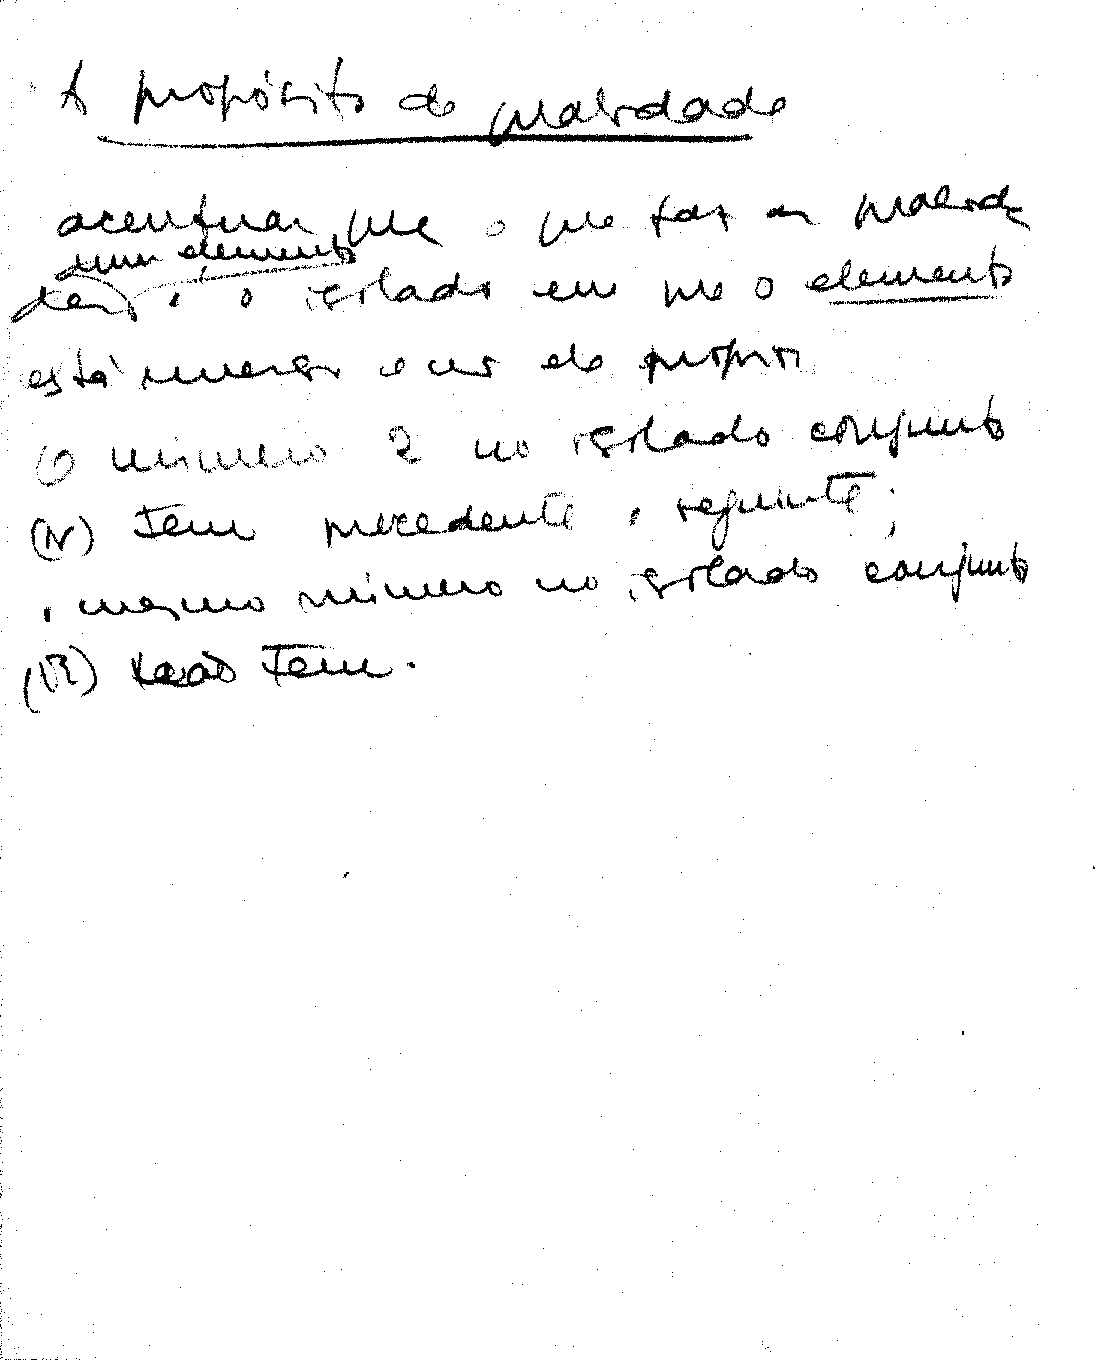 A propósito de qualidade
acentuar que o que faz as qualida
dum elemento
des é o isolado em que o elemento
está imerso e não ele próprio
O número 2 no isolado conjunto
(N) tem precedente e seguinte;
o mesmo número no isolado conjunto
(R) não tem.